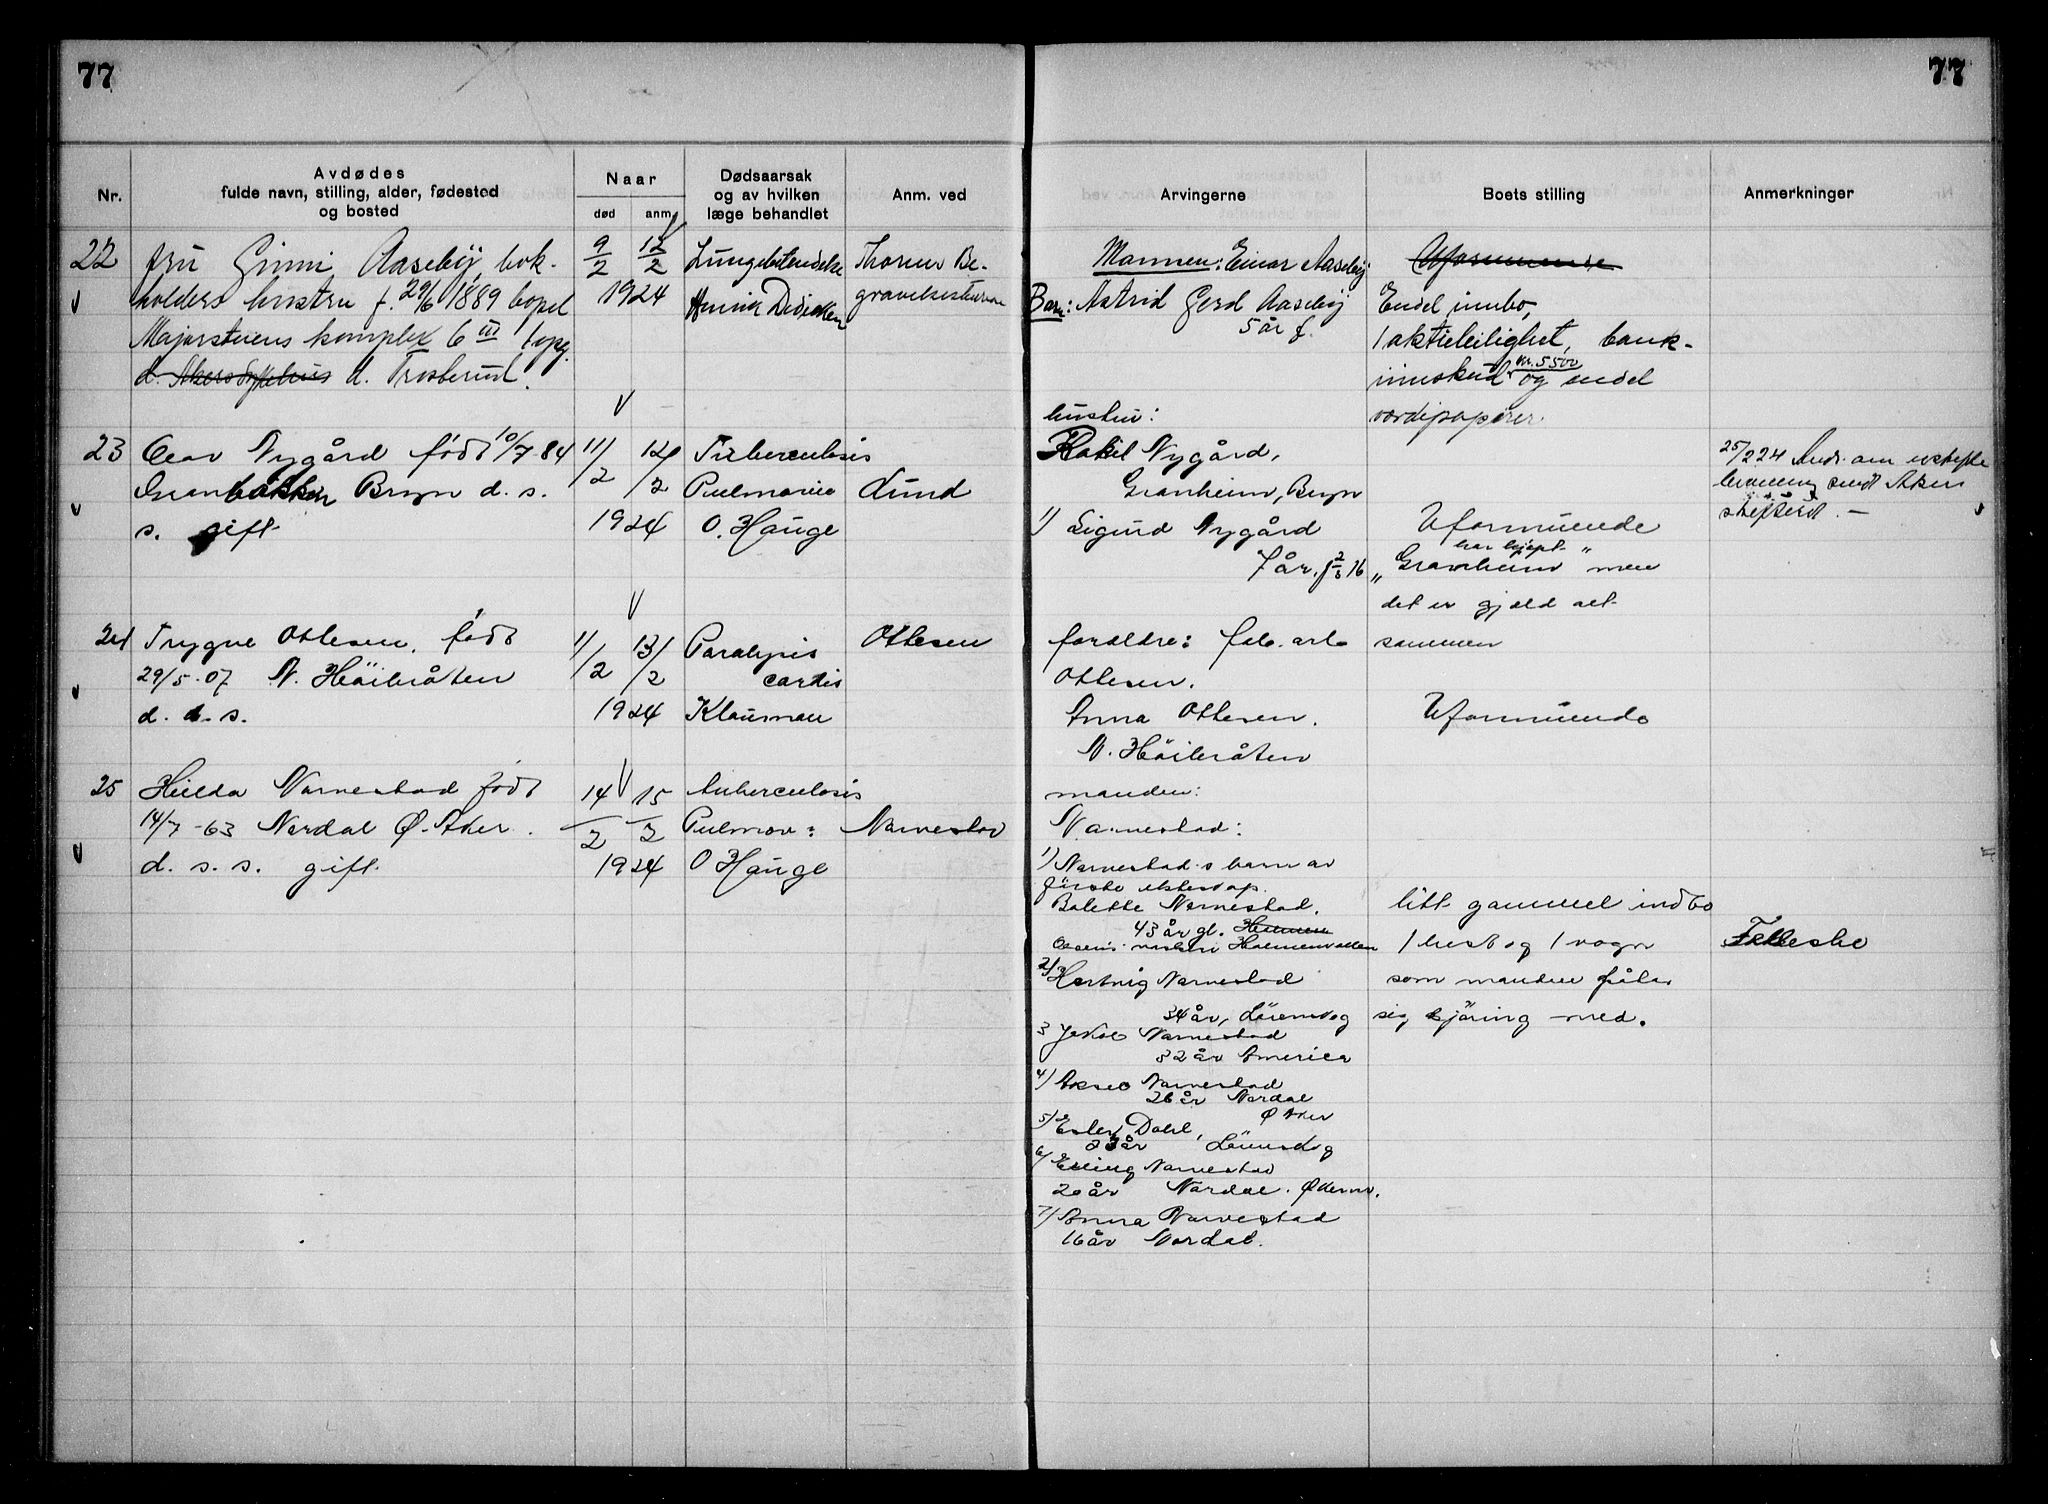 77
77
Nr.
Avdødes
fulde navn, stilling, alder, fødested
og bosted
Naar
død
anm.
Dødsaarsak
og av hvilken
læge behandlet
Anm. ved
Arvingerne
Boets stilling
Anmerkninger
22
fru Ginni Aaseby, bok-
holders hustru f. 29/6 1889 bopel
Majorstuens komplex 6 III opg.
d. Akers sykehus d. Trosterud.
9/2 12/2
1924
Lungebetendelse
Henrik Didriksen
Thorens Be-
gravelsesbureau
Mannen: Einar Aaseby
Barn: Astrid Gerd Aaseby
5 år f.
Uformuende
Endel innbo,
1 aktieleilighet, bank-
innskud kr. 5500 og endel
værdipapirer.
23
Olav Nygård født 10/7-84
Granbakken Bryn d. s.
s. gift
11/2 12/2
1924
Tuberculosis
Pulmonum
O. Hauge
Lund
hustru:
Rakel Nygård,
Granheim, Bryn
1) Sigurd Nygård
7 år. f 2/3 16
Uformuende
har kjøpt
"Granheim" men
det er gjæld alt-
sammen
25/2 24 Medd. om
sendt Aker
skifterett. —
24
Trygve Ottesen, født
29/5-07 N. Höibråten
d. s. s.
11/2 13/2
1924
Paralysis
cordis
Klausman
Ottesen
foreldre: fab. arb
Ottesen.
Anna Ottesen.
N. Höibråten
Uformuende
25
Hulda Narvestad født
14/7-63 Nordal Ø. Aker.
d. s. s. gift
14/2 15/2
1924
Tuberculosis
Pulmon:
O Hauge
Narvestad
manden:
Narvestad:
1) Narvestad's barn av
første ekteskap.
Bolette Narvestad.
43 år gl.
2) Hartvig Narvestad
34 år, Lörenskog
3 Jakob Narvestad
32 år America
4) Aksel Narvestad
26 år Nordal
Ø Aker
5) Ester Dahl,
23 år Lörenskog
6) Erling Narvestad
20 år Nordal. Ø Aker.
7) Anna Narvestad
16 år Nordal.
litt gammel indbo
1 hest og 1 vogn
som manden föler
sig kjöring med.
Felleslie